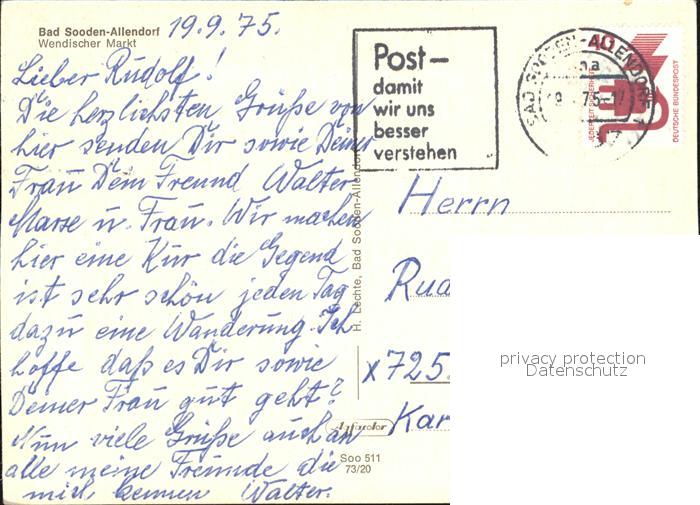 Bad Sooden-Allendorf
Wendischer Markt
19.9.75.
Lieber Rudolf!
Die herzlichsten Grüße von
hier senden Dir sowie Deiner
Frau Dein Freund Walter
u. Frau. Wir machen
hier eine Kur die Gegend
ist sehr schön jeden Tag
dazu eine Wanderung. Ich
hoffe daß es Dir sowie
Deiner Frau gut geht?
Nun viele Grüße auch an
alle meine Freunde die
mich kennen Walter.
H. Lechte, Bad Sooden-Allendorf
Soo 511
73/20
Post –
damit
wir uns
besser
verstehen
BAD SOODEN-ALLENDORF
40
JEDERZEIT SICHERHEIT
DEUTSCHE BUNDESPOST
Herrn
Rud
x725
Kar
privacy protection
Datenschutz